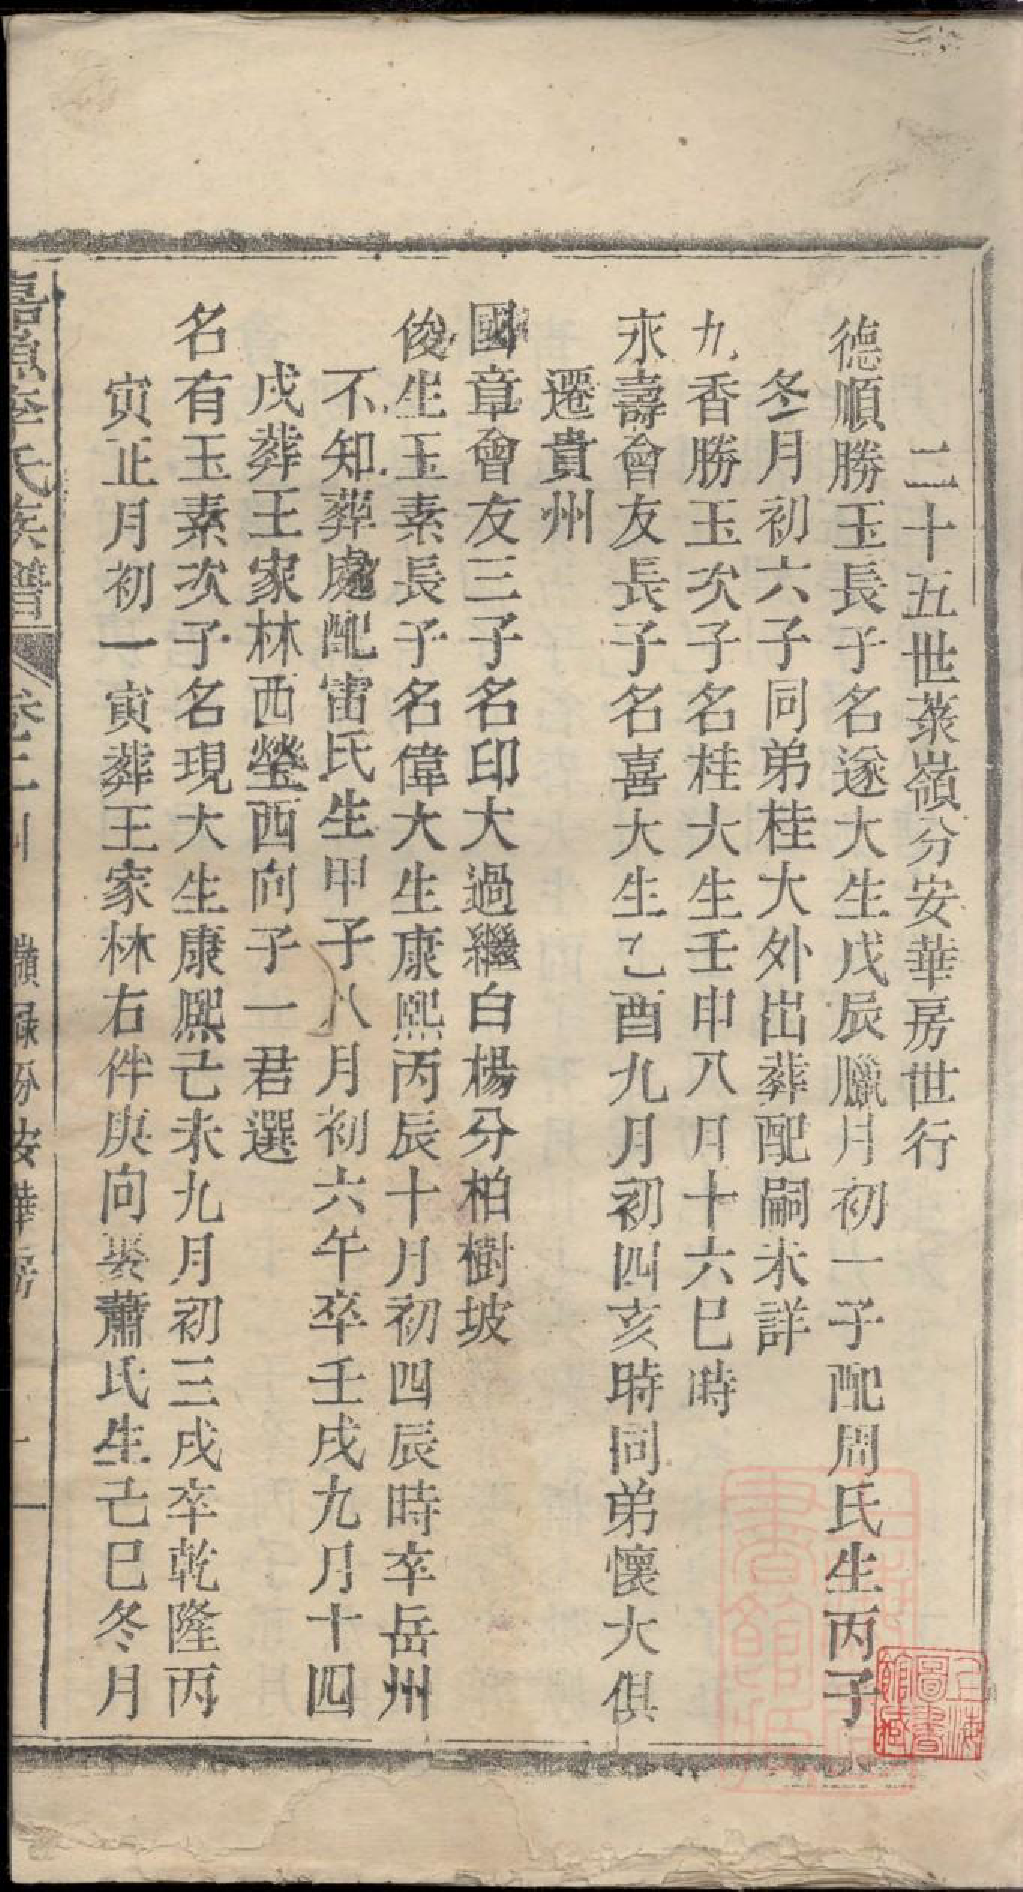 二十五世萊嶺分安華房世行
德順勝玉長子名遂大生戊辰臘月初一子配周氏生丙子
冬月初六子同弟桂大外出葬配嗣未詳
九香勝玉次子名桂大生壬申八月十六巳時
永壽會友長子名喜大生乙酉九月初四亥時同弟懷大俱
遷貴州
國章會友三子名印大過繼白楊分柏樹坡
俊生玉素長子名偉大生康熙丙辰十月初四辰時卒岳州
不知葬處配雷氏生甲子八月初六午卒壬戌九月十四
戌葬王家林西瑩西向子一君選
名有玉素次子名現大生康熙己未九月初三戌卒乾隆丙
寅正月初一寅葬王家林右件庚向娶蕭氏生己巳冬月
嘉魚李氏族譜 卷二 嶺分安華房
上海圖書館藏